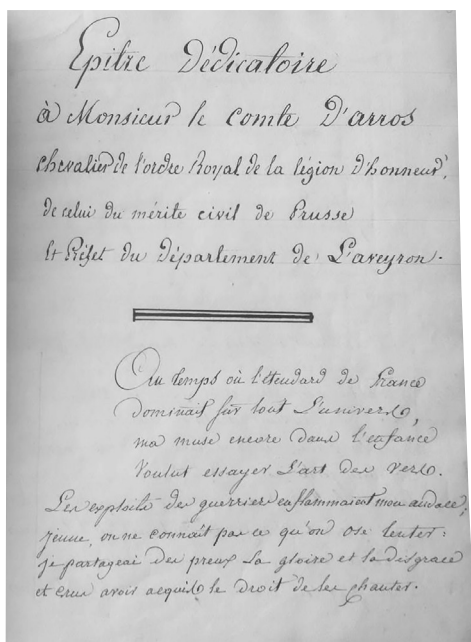 Epitre Dédicatoire
à Monsieur le comte D'arros
chevalier de l'ordre Royal de la légion d'honneur,
de celui du mérite civil de Prusse
Et Préfet du Département de L'aveyron.
Au temps où l'étendard de France
dominait sur tout L'univers,
ma muse encore dans l'enfance
Voulut essayer L'art des vers.
Les exploits des guerriers enflammaient mon audace;
jeune, on ne connaît pas ce qu'on ose tenter:
je partageai des preux la gloire et la disgrace
et crus avoir acquis le droit de les chanter.